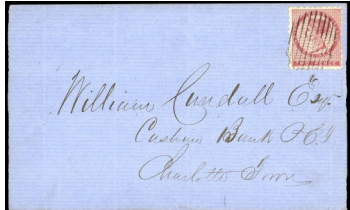 William Cundall Esqr.
Cashier Bank P.E.I
Charlotte Town